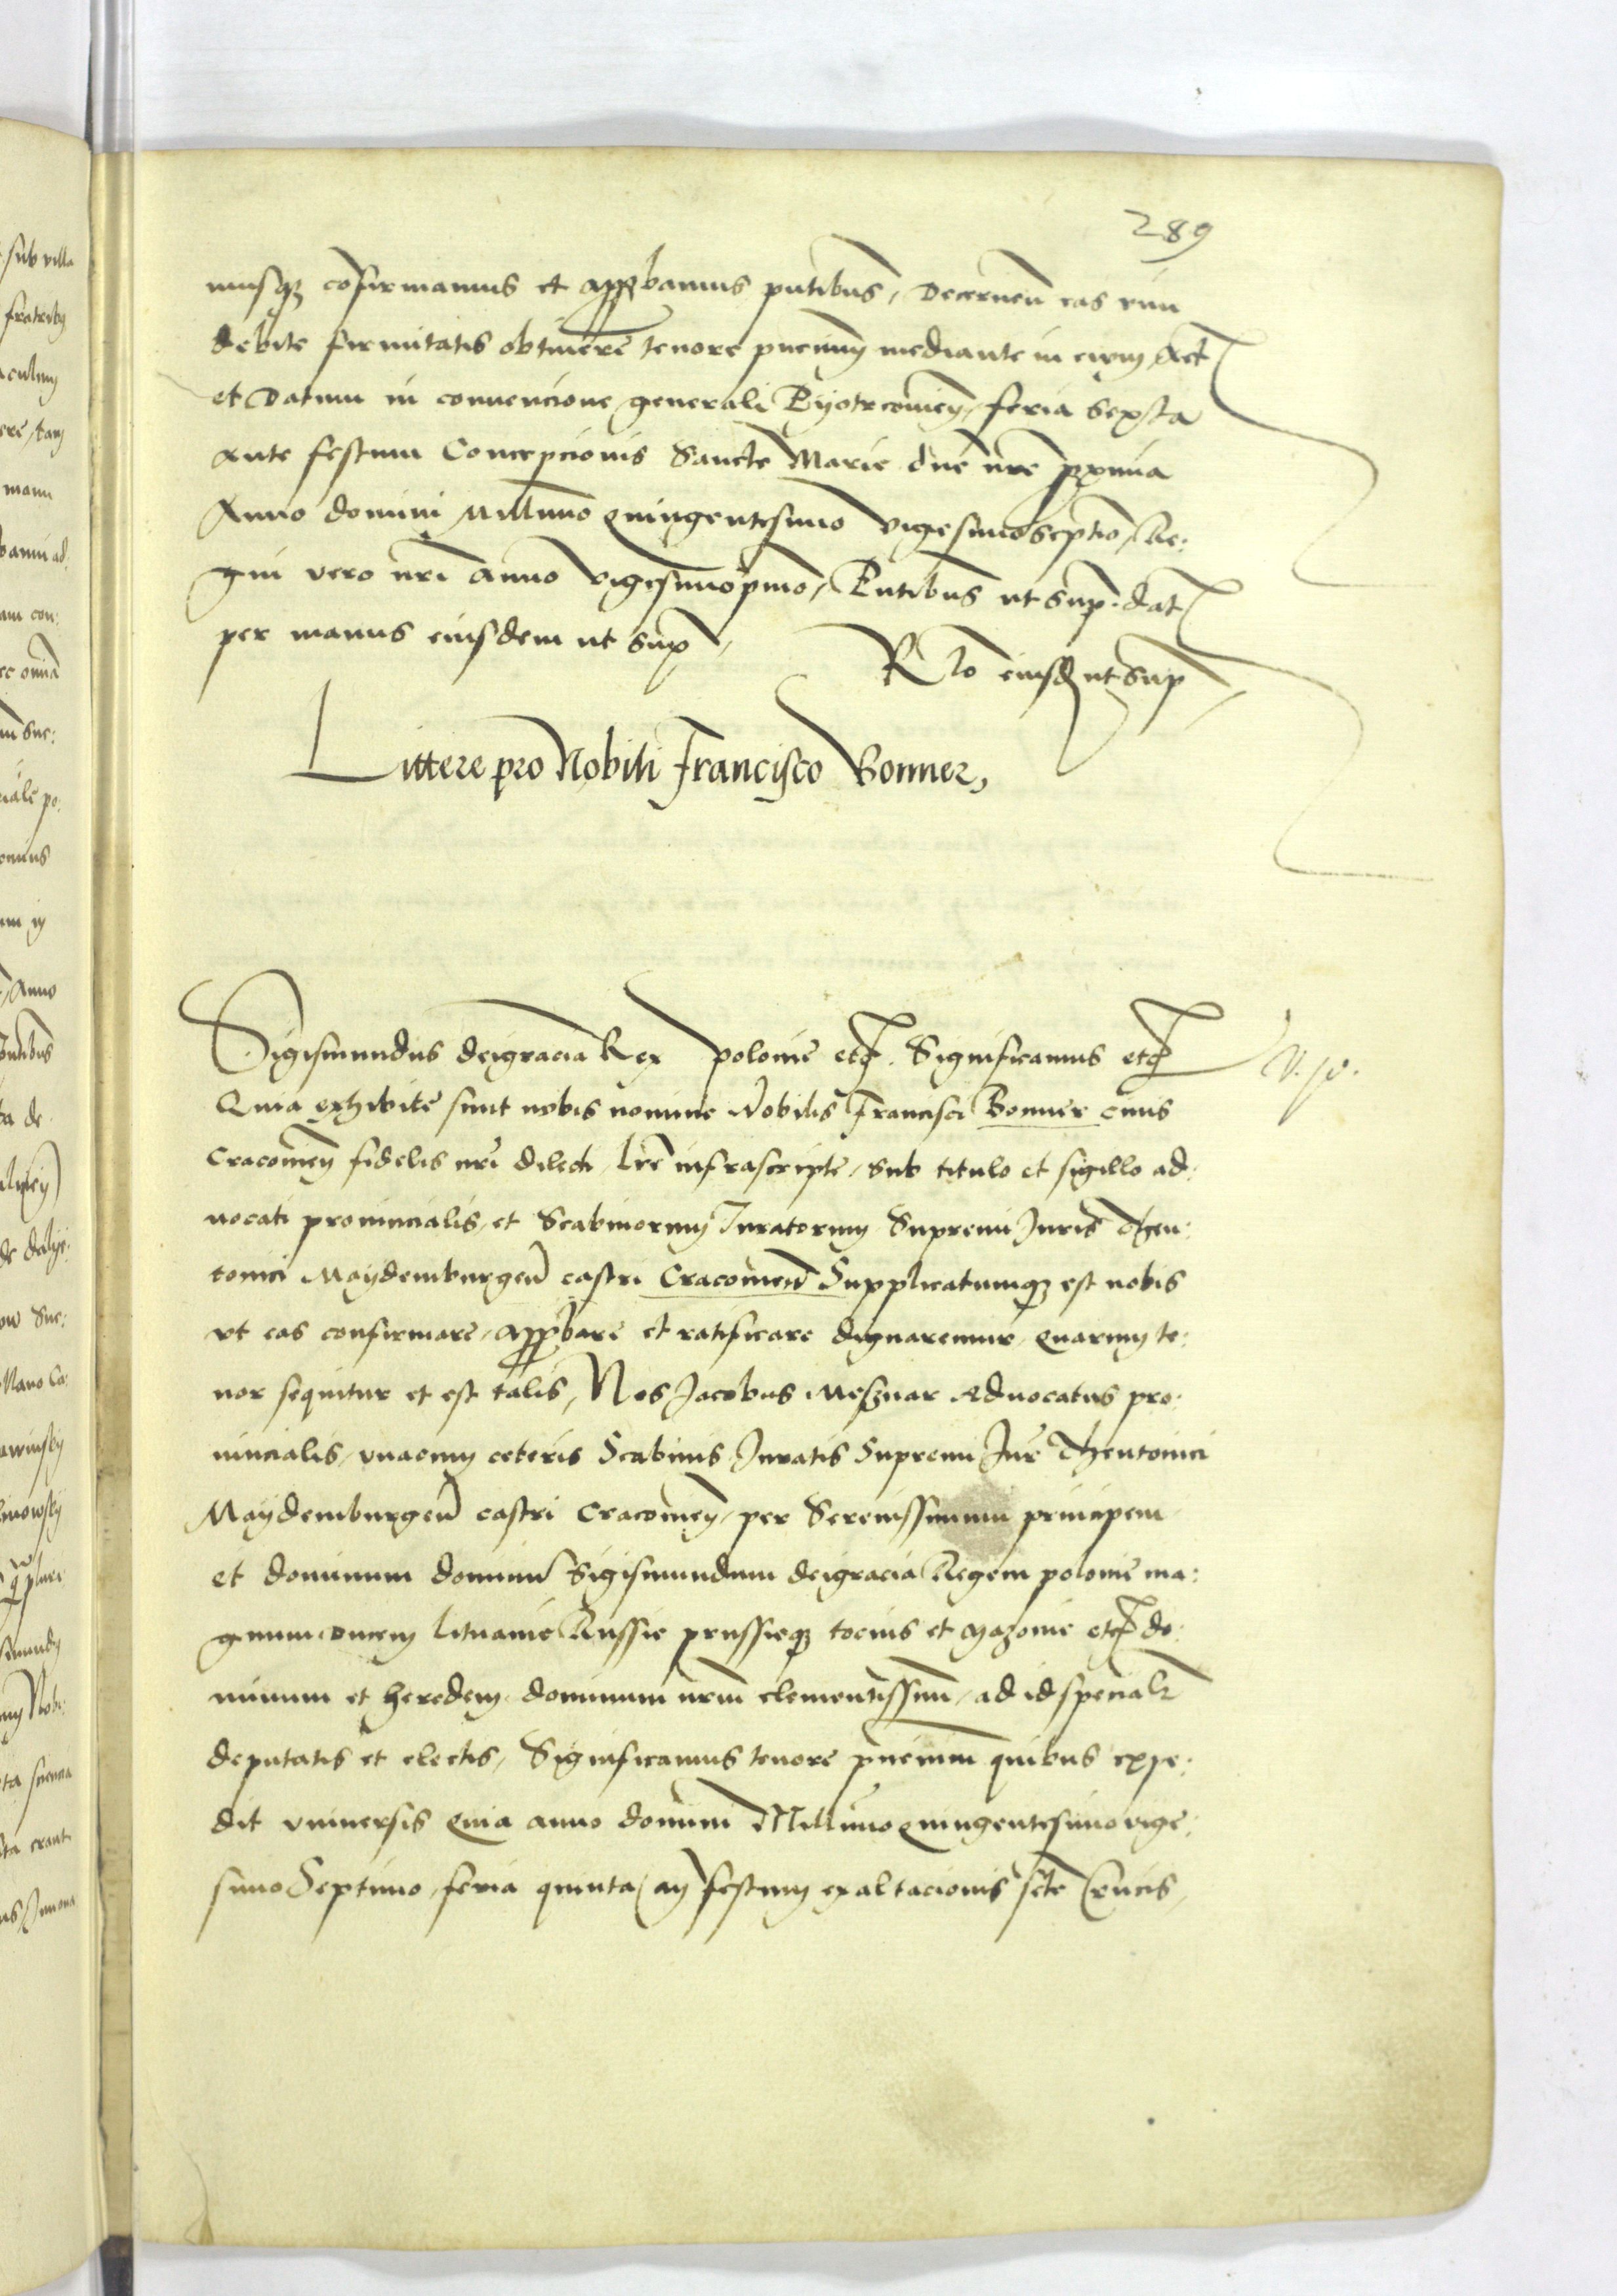 289
musq confirmamus et approbamus pntibus, Decernen eas vim
debite firmitatis obtinere tenore pncium mediante in cuius Act
et Datum in convencione generali Pyotrcovien, feria sexta
ante festum Concepcionis Sancte Marie dne nre proxima
Anno domini Millmo quingentesimo vigesimoseptio, Re:
gni vero nri anno vigesimopmo, Pntibus ut sup. dat
per manus eiusdem ut sup,
Rlo eiusd ut sup
Littere pro Nobili Francisco Bonner,
Sigismundus deigracia Rex polonie etc. Significamus etc
Quia exhibite sunt nobis nomine Nobilis Francisci Bonner civis
Cracovien fidelis nri dilecti, lre infrascripte, sub titulo et sigillo ad:
vocati provincialis, et Scabinorum Juratorum Supremi Juris Theu:
tonici Maydemburgen castri Cracovien Supplicatumq est nobis
vt eas confirmare, approbare et ratificare dignaremur, quarum te:
nor sequitur et est talis, Nos Jacobus Mesznar Advocatus pro:
vincialis, vnacum ceteris Scabinis Juratis Supremi Jur Theutonici
Maydemburgen castri Cracovien, per Serenissimum principem
et dominum dominu Sigismundum deigracia Regem polonie ma:
gnum ducem lituanie Russie prussieq tocius et Mazovie etc do:
minum et heredem, dominum nrm clementissim, ad id specialr
deputatis et electis, Significamus tenore pncium quibus expe:
dit vniversis quia anno domini Millimo quingentesimo vige:
simo Septimo, feria quinta an festum exaltacionis scte Crucis,